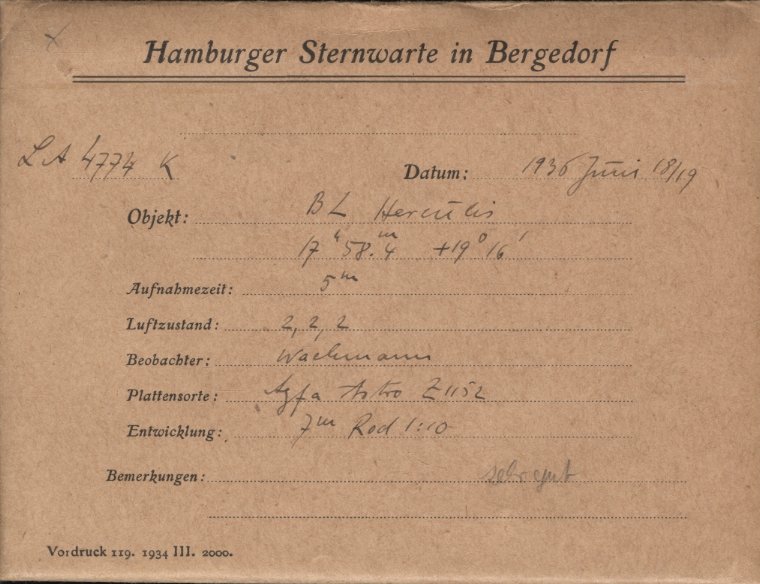 Hamburger Sternwarte in Bergedorf
LA 4774 K Datum: 1936 Juni 18/19
Objekt: BL Herculis
17ʰ 58.ᵐ4 +19° 16'
Aufnahmezeit: 5ᵐ
Luftzustand: 2, 2, 2
Beobachter: Wachmann
Plattensorte: Agfa Astro Z 1152
Entwicklung: 7ᵐ Rod 1:10
Bemerkungen: sehr gut
Vordruck 119. 1934 III. 2000.